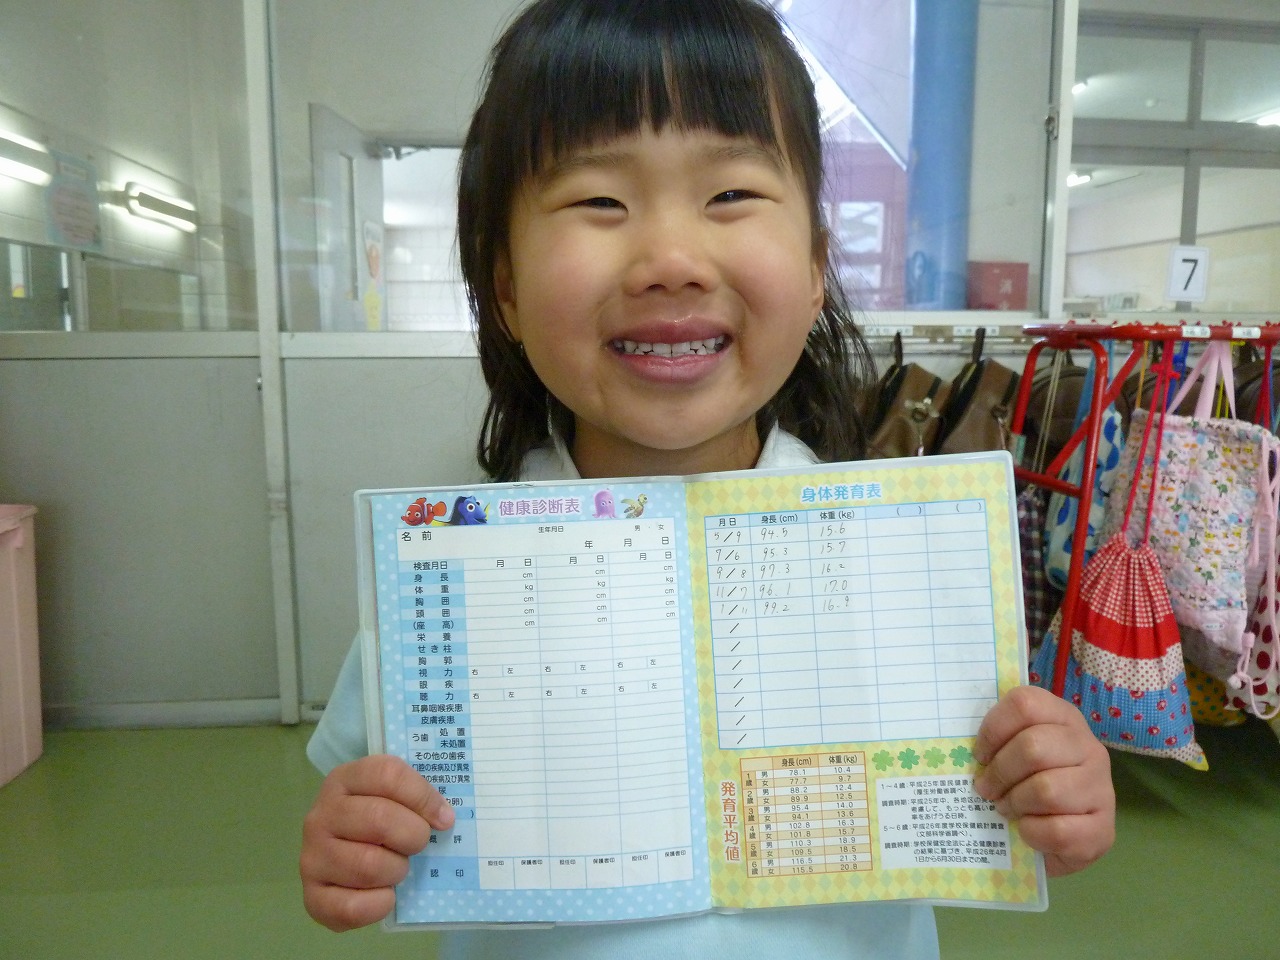 7
消
健康診断表
生年月日
男・女
名前
年 月 日
検査月日 月 日 月 日 月 日
身長 cm cm cm
体重 kg kg kg
胸囲 cm cm cm
頭囲 cm cm cm
(座高) cm cm cm
栄養
せき柱
胸郭
視力 右 左 右 左 右 左
眼疾
聴力 右 左 右 左 右 左
耳鼻咽喉疾患
皮膚疾患
う歯 処置
未処置
その他の歯疾
口腔の疾病及び異常
の疾病及び異常
尿
卵)
)
概評
認印 担任印 保護者印 担任印 保護者印 担任印 保護者印
身体発育表
月日 身長(cm) 体重(kg) ( ) ( )
5/9 94.5 15.6
7/6 95.3 15.7
9/8 97.3 16.2
11/7 96.1 17.0
1/11 99.2 16.9
/
/
/
/
/
/
/
発育平均値
身長(cm) 体重(kg)
1歳 男 78.1 10.4
女 77.7 9.7
2歳 男 88.2 12.4
女 89.9 12.5
3歳 男 95.4 14.0
女 94.1 13.6
4歳 男 102.8 16.3
女 101.8 15.7
5歳 男 110.3 18.9
女 109.5 18.5
6歳 男 116.5 21.3
女 115.5 20.8
1～4歳:平成25年国民健康・
(厚生労働省調べ)。
調査時期:平成25年中、各地区の実
考慮して、もっとも高い参
率をあげうる日時。
5～6歳:平成26年度学校保健統計調査
(文部科学省調べ)。
調査時期:学校保健安全法による健康診断
の結果に基づき、平成26年4月
1日から6月30日までの間。